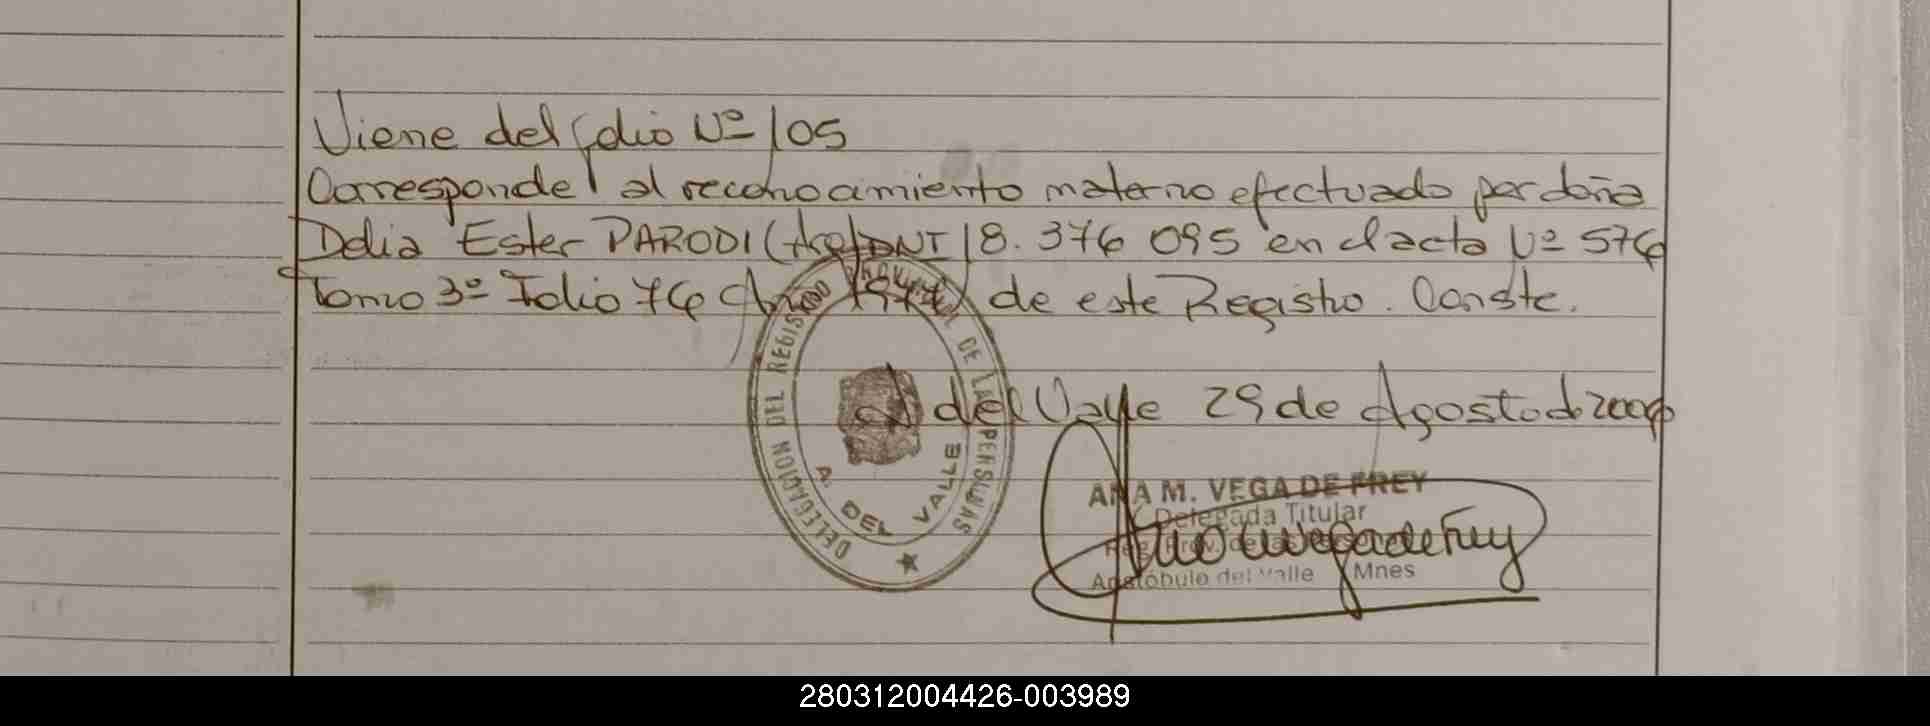 Viene del folio Nº 105
Corresponde al reconocimiento materno efectuado por doña
Delia Ester PARODI (Arg) DNI 18.376 095 en el acta Nº 576
Tomo 3º Folio 76 Año de este Registro. Conste.
A del Valle 29 de Agosto de 2006
DELEGACION DEL REGISTRO PROVINCIAL DE LAS PERSONAS
A. DEL VALLE
ANA M. VEGA DE FREY
Delegada Titular
Reg. Prov. de las
Aristóbulo del Valle Mnes
280312004426-003989